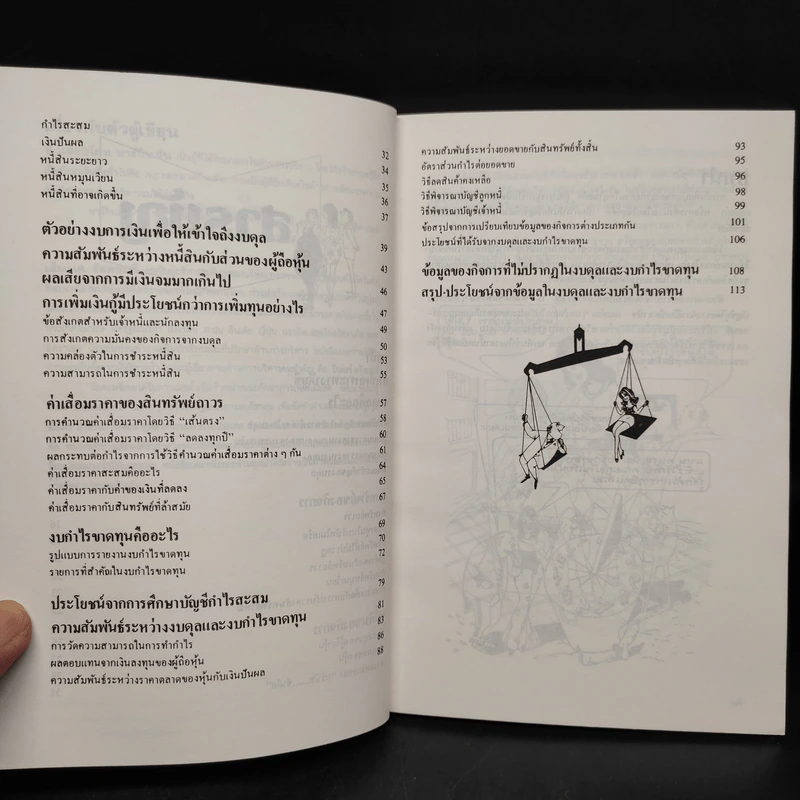 กำไรสะสม 32
เงินปันผล 34
หนี้สินระยะยาว 35
หนี้สินหมุนเวียน 36
หนี้สินที่อาจเกิดขึ้น 37
ตัวอย่างงบการเงินเพื่อให้เข้าใจถึงงบดุล 39
ความสัมพันธ์ระหว่างหนี้สินกับส่วนของผู้ถือหุ้น 43
ผลเสียจากการมีเงินจมมากเกินไป 46
การเพิ่มเงินกู้มีประโยชน์กว่าการเพิ่มทุนอย่างไร 47
ข้อสังเกตสำหรับเจ้าหนี้และนักลงทุน 49
การสังเกตความมั่นคงของกิจการจากงบดุล
ความคล่องตัวในการชำระหนี้สิน 53
ความสามารถในการชำระหนี้สิน 55
ค่าเสื่อมราคาของสินทรัพย์ถาวร 57
การคำนวณค่าเสื่อมราคาโดยวิธี “เส้นตรง” 58
การคำนวณค่าเสื่อมราคาโดยวิธี “ลดลงทุกปี” 60
ผลกระทบต่อกำไรจากการใช้วิธีคำนวณค่าเสื่อมราคาต่าง ๆ กัน 61
ค่าเสื่อมราคาสะสมคืออะไร 64
ค่าเสื่อมราคากับค่าของเงินที่ลดลง 65
ค่าเสื่อมราคากับสินทรัพย์ที่ล้าสมัย 67
งบกำไรขาดทุนคืออะไร 69
รูปแบบการรายงานงบกำไรขาดทุน 70
รายการที่สำคัญในงบกำไรขาดทุน 72
ประโยชน์จากการศึกษาบัญชีกำไรสะสม 79
ความสัมพันธ์ระหว่างงบดุลและงบกำไรขาดทุน 81
การวัดความสามารถในการทำกำไร 83
ผลตอบแทนจากเงินลงทุนของผู้ถือหุ้น 86
ความสัมพันธ์ระหว่างราคาตลาดของหุ้นกับเงินปันผล 88
ความสัมพันธ์ระหว่างยอดขายกับสินทรัพย์ทั้งสิ้น 93
อัตราส่วนกำไรต่อยอดขาย 95
วิธีลดสินค้าคงเหลือ 96
วิธีพิจารณาบัญชีลูกหนี้ 98
วิธีพิจารณาบัญชีเจ้าหนี้ 99
ข้อสรุปจากการเปรียบเทียบข้อมูลของกิจการต่างประเภทกัน 101
ประโยชน์ที่ได้รับจากงบดุลและงบกำไรขาดทุน 106
ข้อมูลของกิจการที่ไม่ปรากฏในงบดุลและงบกำไรขาดทุน 108
สรุป-ประโยชน์จากข้อมูลในงบดุลและงบกำไรขาดทุน 113